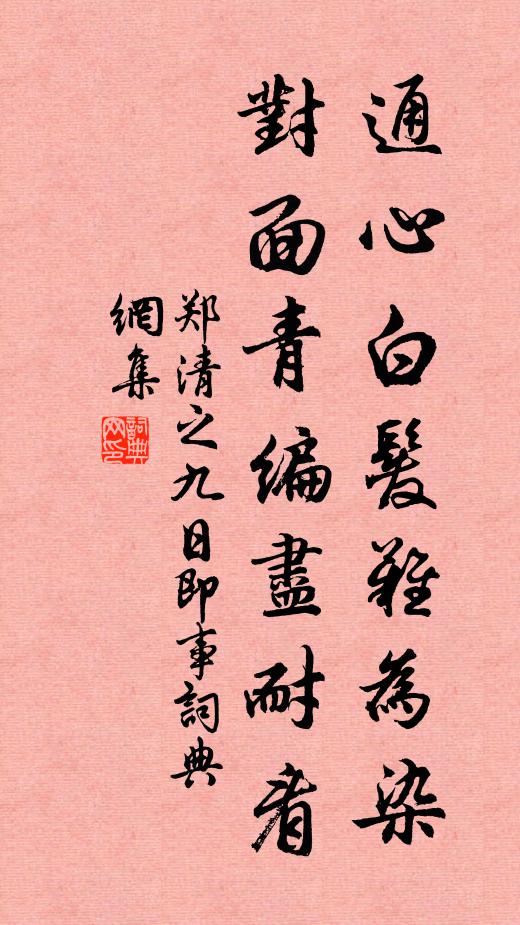 通心白髮難為染
對面青編盡耐看
郑清之九日即事詞典
網集
詞典
网印